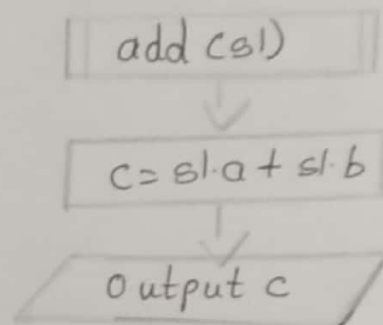 add (s1)
c = s1.a + s1.b
Output c